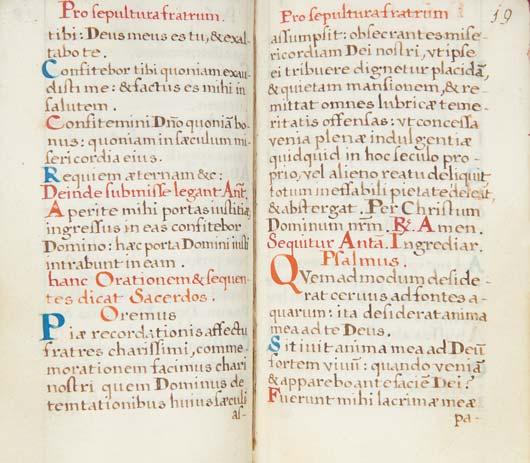 Pro sepultura fratrum.
tibi: Deus meus es tu, & exal-
tabo te.
Confitebor tibi quoniam exau
disti me: & factus es mihi in
salutem.
Confitemini Dño quoniã bo-
nus: quoniam in sæculum mi-
sericordia eius.
Requiem æternam &c:
Deinde submisse legant Añt.
Aperite mihi portas iustitiæ
ingressus in eas confitebor
Domino: hæc porta Domini iusti
intrabunt in eam.
hanc Orationem & sequen-
tes dicat Sacerdos.
Oremus
Piæ recordationis affectu
fratres charissimi, comme-
morationem facimus chari
nostri quem Dominus de
temtationibus huius sæculi
as-
Pro sepultura fratrum
19
assumpsit: obsecrantes mise-
ricordiam Dei nostri, vt ipse
ei tribuere dignetur placidã,
& quietam mansionem, & re-
mittat omnes lubricæ teme-
ritatis offensas: vt concessa
venia plenæ indulgentiæ
quidquid in hoc seculo pro-
prio, vel alieno reatu deliquit
totum ineffabili pietate deleat,
& abstergat. Per Christum
Dominum nr̃m. ℟. Amen.
Sequitur Anta. Ingrediar.
Psalmus.
Quem admodum deside-
rat ceruus ad fontes a-
quarum: ita desiderat anima
mea ad te Deus.
Sitiuit anima mea ad Deũ
fortem viuũ: quando veniã
& apparebo ante faciẽ Dei?
Fuerunt mihi lacrimæ meæ
pa-